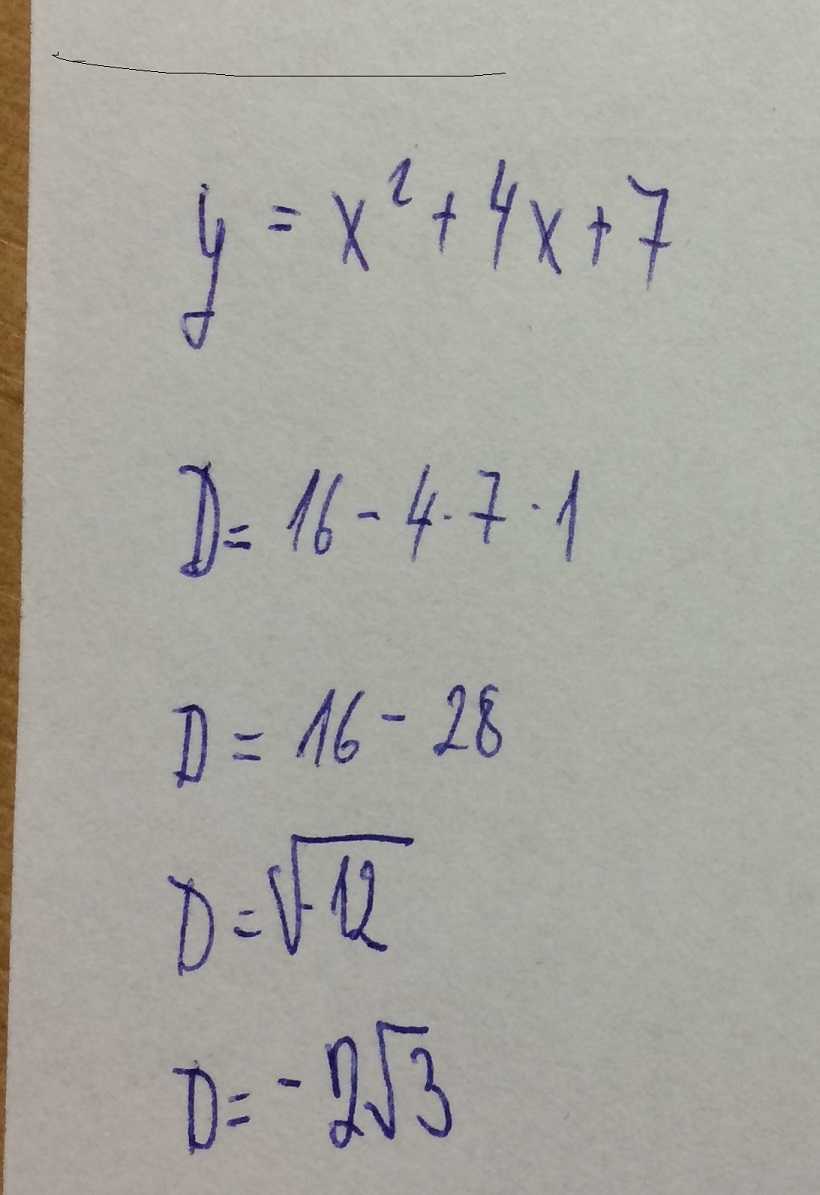 y = x² + 4x + 7
D = 16 - 4 · 7 · 1
D = 16 - 28
D = √-12
D = - 2√3